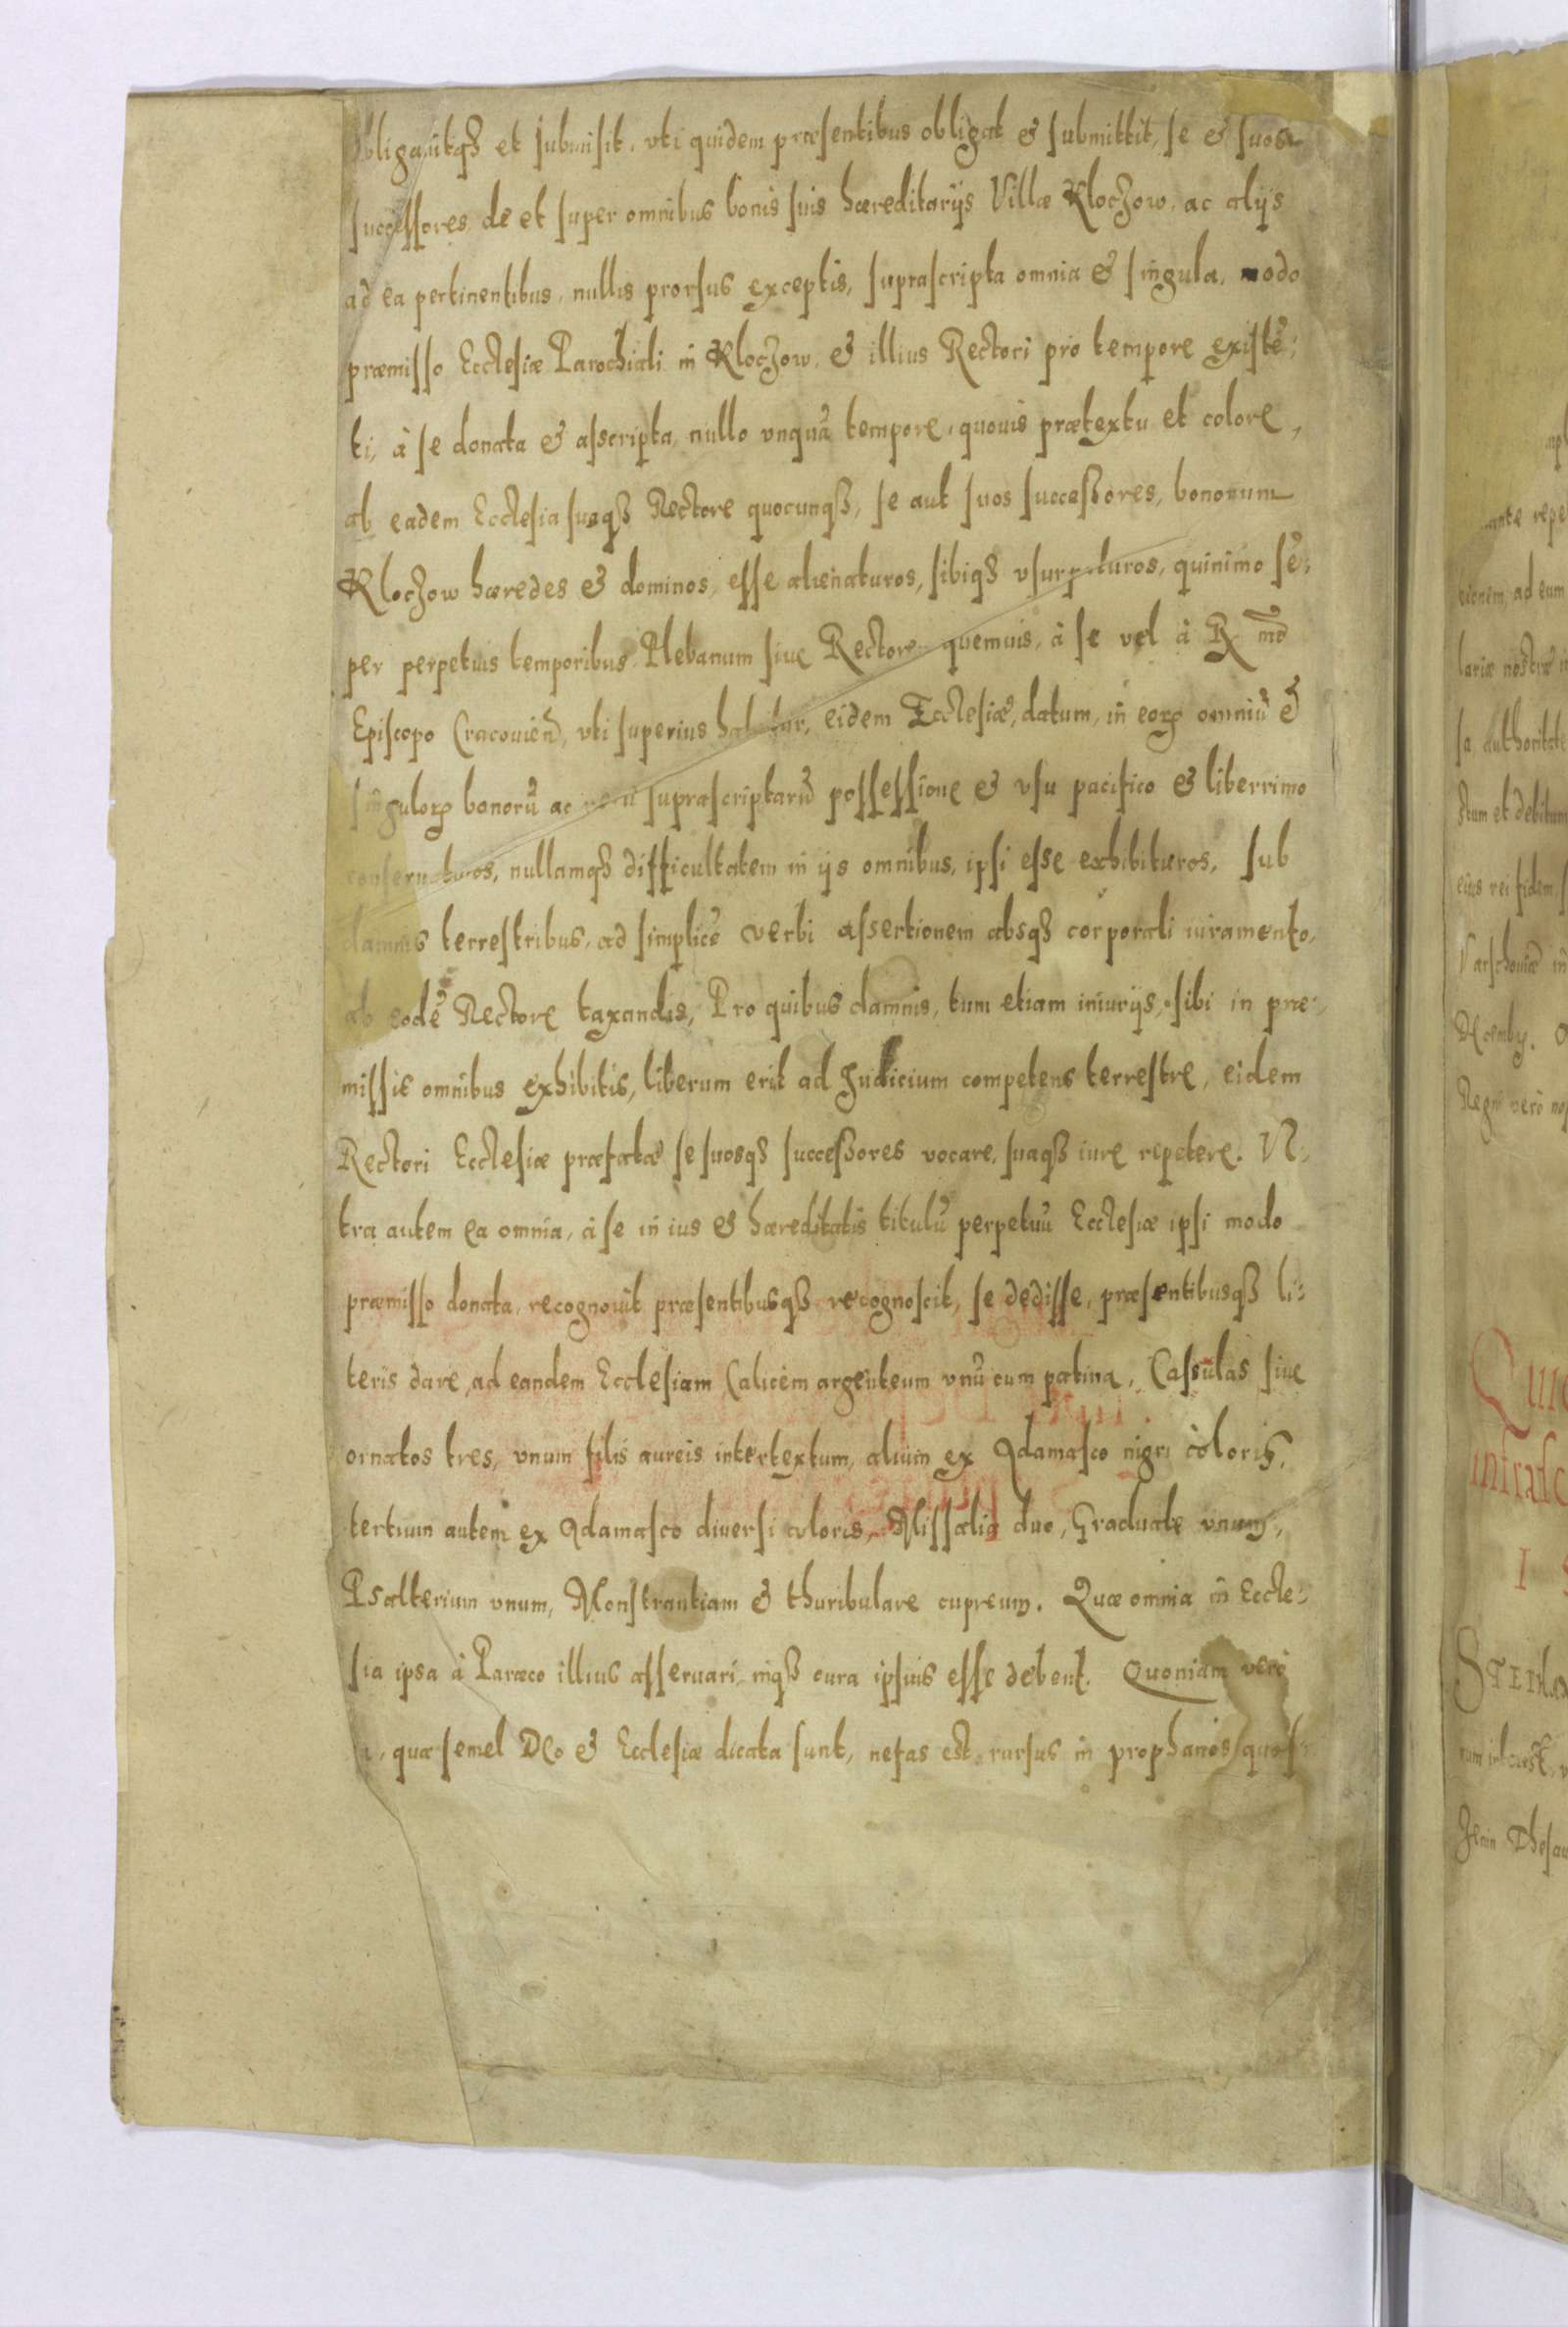 obligauitqꝫ et submisit, vti quidem præsentibus obligat & submittit, se & suos
successores de et super omnibus bonis suis hæreditarijs Villæ Kloczow, ac alijs
ad ea pertinentibus, nullis prorsus exceptis, suprascripta omnia & singula, modo
præmisso Ecclesiæ Parochiali in Kloczow, & illius Rectori pro tempore existē:
ti, à se donata & asscripta, nullo vnquā tempore, quouis prætextu et colore,
ab eadem Ecclesia suaqꝫ Rectore quocunqꝫ, se aut suos successores, bonorum
Kloczow hæredes & dominos, esse alienaturos, sibiqꝫ vsurpaturos, quinimo sē:
per perpetuis temporibus Plebanum siue Rectore quemuis, à se vel à R mō
Episcopo Cracouień, vti superius habetur, eidem Ecclesiæ, datum, in eoꝝ omniū &
singuloꝝ bonorū ac rerū suprascriptarū possessione & vsu pacifico & liberrimo
conseruaturos, nullamqꝫ difficultatem in ijs omnibus, ipsi esse exhibituros, sub
damnis terrestribus, ad simplicē verbi assertionem absqꝫ corporali iuramento,
ab eodē Rectore taxandis, Pro quibus damnis, tum etiam iniurijs, sibi in præ:
missis omnibus exhibitis, liberum erit ad Judicium competens terrestre, eidem
Rectori Ecclesiæ præfatæ se suosqꝫ successores vocare, suaqꝫ iure repetere. Vl:
tra autem ea omnia, à se in ius & hæreditatis titulū perpetuū Ecclesiæ ipsi modo
præmisso donata, recognouit præsentibusqꝫ recognoscit, se dedisse, præsentibusqꝫ li:
teris dare, ad eandem Ecclesiam Calicem argenteum vnū cum patina, Casulas siue
ornatos tres, vnum filis aureis intertextum, alium ex Adamasco nigri coloris,
tertium autem ex Adamasco diuersi coloris, Missalia duo, Graduale vnum,
Psalterium vnum, Monstrantiam & thuribulare cupreum. Quæ omnia in Eccle:
sia ipsa à Paræco illius asseruari, inqꝫ cura ipsius esse debent. Quoniam verò
quæ semel Deo & Ecclesiæ dicata sunt, nefas est rursus in prophanos quos
repe
ad eum
lariæ nostræ
sa authoritate
stum et debitum
eius rei fidem
Varschouiæ in
Decembr.
Regni verò
Qui
infrasc
I